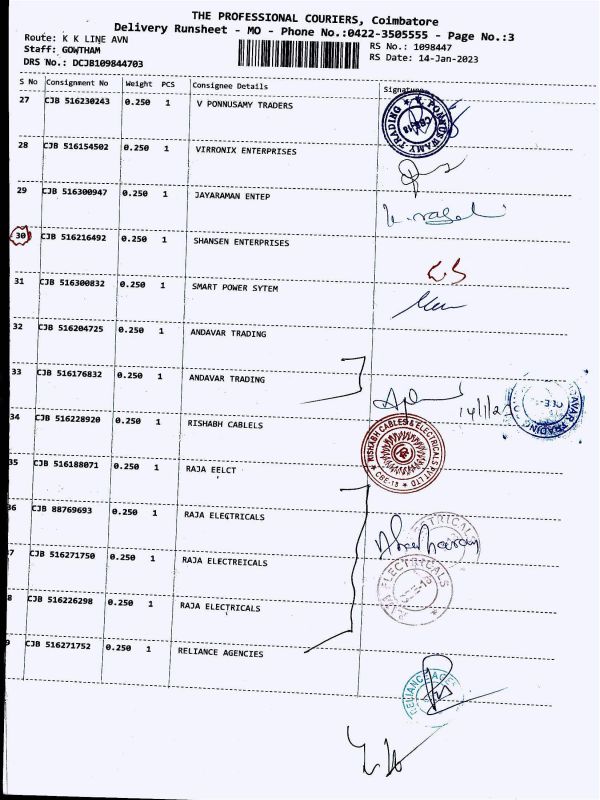 THE PROFESSIONAL COURIERS, Coimbatore
Delivery Runsheet - MO - Phone No.:0422-3505555 - Page No.:3
Route: K K LINE AVN
RS No.: 1098447
Staff: GOWTHAM
RS Date: 14-Jan-2023
DRS No.: DCJB109844703
S No Consignment No Weight PCS Consignee Details Signature
27 CJB 516230243 0.250 1 V PONNUSAMY TRADERS
PONNUSWAMY TRADING CBE-18
28 CJB 516154502 0.250 1 VIRRONIX ENTERPRISES
29 CJB 516300947 0.250 1 JAYARAMAN ENTEP
30 CJB 516216492 0.250 1 SHANSEN ENTERPRISES
31 CJB 516300832 0.250 1 SMART POWER SYTEM
32 CJB 516204725 0.250 1 ANDAVAR TRADING
33 CJB 516176832 0.250 1 ANDAVAR TRADING
34 CJB 516228920 0.250 1 RISHABH CABLELS
RISHABH CABLES & ELECTRICALS PVT LTD CBE-18
35 CJB 516188071 0.250 1 RAJA EELCT
36 CJB 88769693 0.250 1 RAJA ELECTRICALS
7 CJB 516271750 0.250 1 RAJA ELECTREICALS
RAJA ELECTRICALS
8 CJB 516226298 0.250 1 RAJA ELECTRICALS
9 CJB 516271752 0.250 1 RELIANCE AGENCIES
RELIANCE